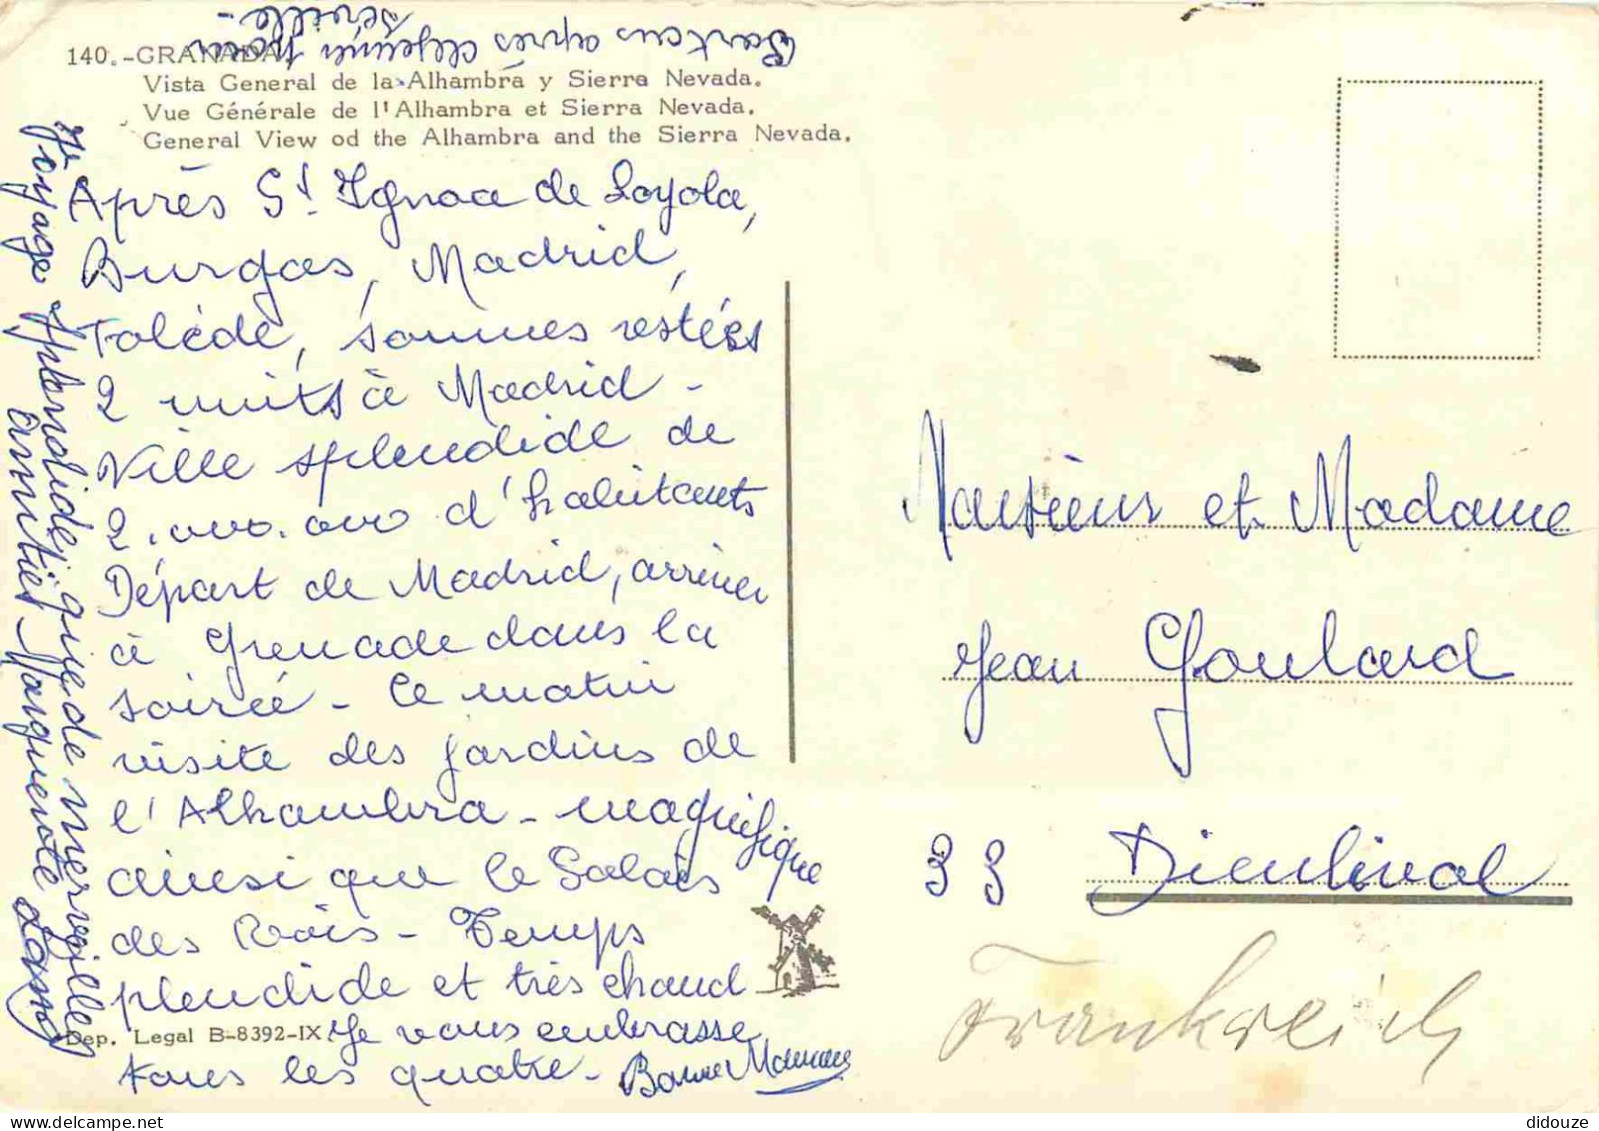 140.-GRANADA
Vista General de la Alhambra y Sierra Nevada.
Vue Générale de l'Alhambra et Sierra Nevada.
General View od the Alhambra and the Sierra Nevada.
Après St Ignace de Loyola,
Burgos, Madrid,
Tolède, sommes restées
2 nuits à Madrid -
Ville splendide de
2.000.000 d'habitants
Départ de Madrid, arrivée
à Grenade dans la
soirée - Ce matin
visite des jardins de
l'Alhambra - magnifique
ainsi que le Palais
des Rois - Temps
splendide et très chaud
Je vous embrasse
tous les quatre - Bonne Maman
Dep. Legal B-8392-IX
Partons après déjeuner pour
Séville -
Voyage splendide, que de merveilles
amitiés Marguerite
Monsieur et Madame
Jean Goulard
33 Dieulivol
Frankreich
didouze